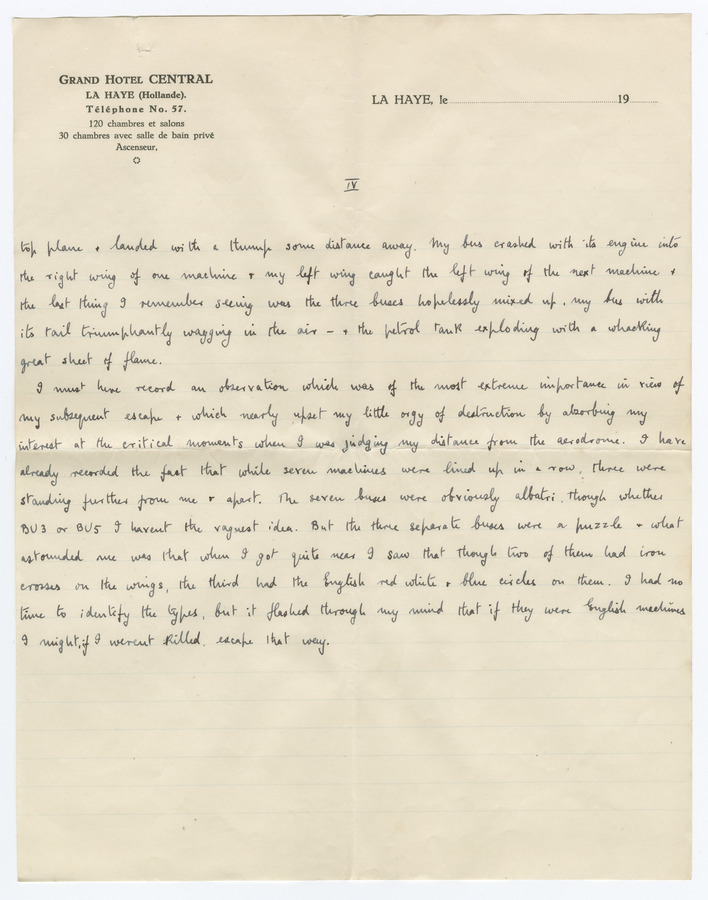 GRAND HOTEL CENTRAL
LA HAYE (Hollande).
Téléphone No. 57.
120 chambres et salons
30 chambres avec salle de bain privé
Ascenseur.
LA HAYE, le 19
IV
top plane & landed with a thump some distance away. My bus crashed with its engine into
the right wing of one machine & my left wing caught the left wing of the next machine &
the last thing I remember seeing was the three buses hopelessly mixed up, my bus with
its tail triumphantly wagging in the air – & the petrol tank exploding with a whacking
great sheet of flame.
I must here record an observation which was of the most extreme importance in view of
my subsequent escape & which nearly upset my little orgy of destruction by absorbing my
interest at the critical moments when I was judging my distance from the aerodrome. I have
already recorded the fact that while seven machines were lined up in a row, three were
standing further from me & apart. The seven buses were obviously albatri, though whether
BU3 or BU5 I havent the vaguest idea. But the three separate buses were a puzzle & what
astounded me was that when I got quite near I saw that though two of them had iron
crosses on the wings, the third had the English red white & blue circles on them. I had no
time to identify the types, but it flashed through my mind that if they were English machines
I might, if I werent killed, escape that way.